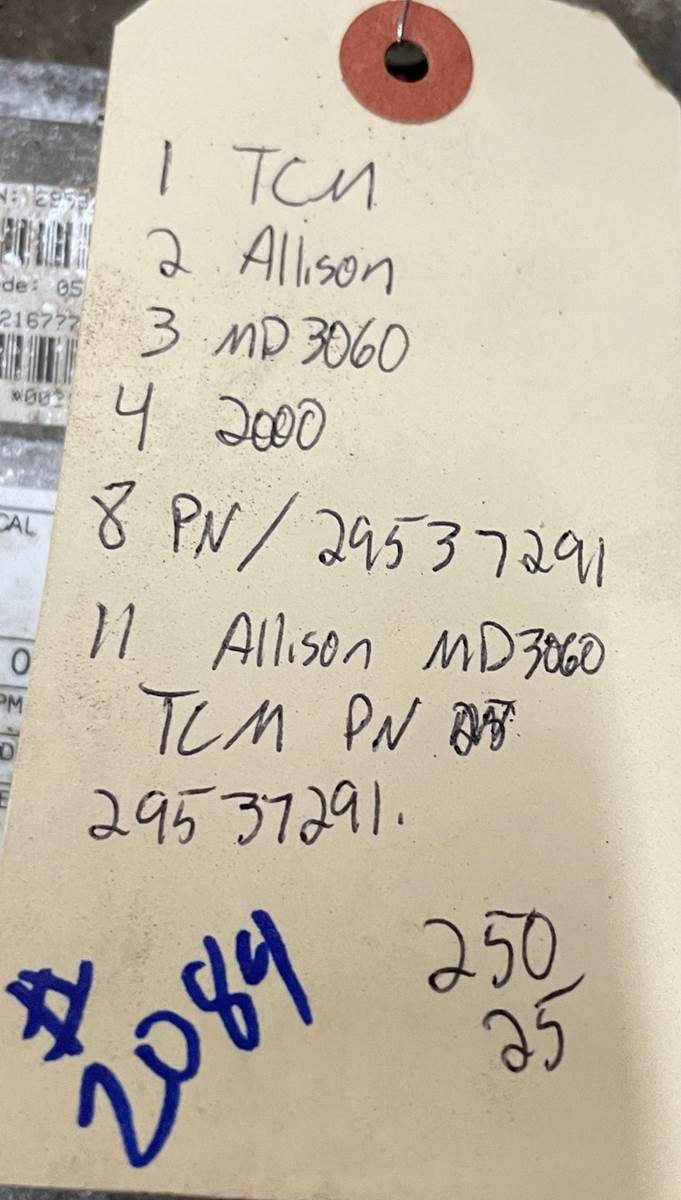 1 TCM
2 Allison
3 MD 3060
4 2000
8 PN/29537291
11 Allison MD3060
TCM PN
29537291.
#2089
250
25
N: 2953
de: 05
216777
*002
CAL
0
PM
D
E